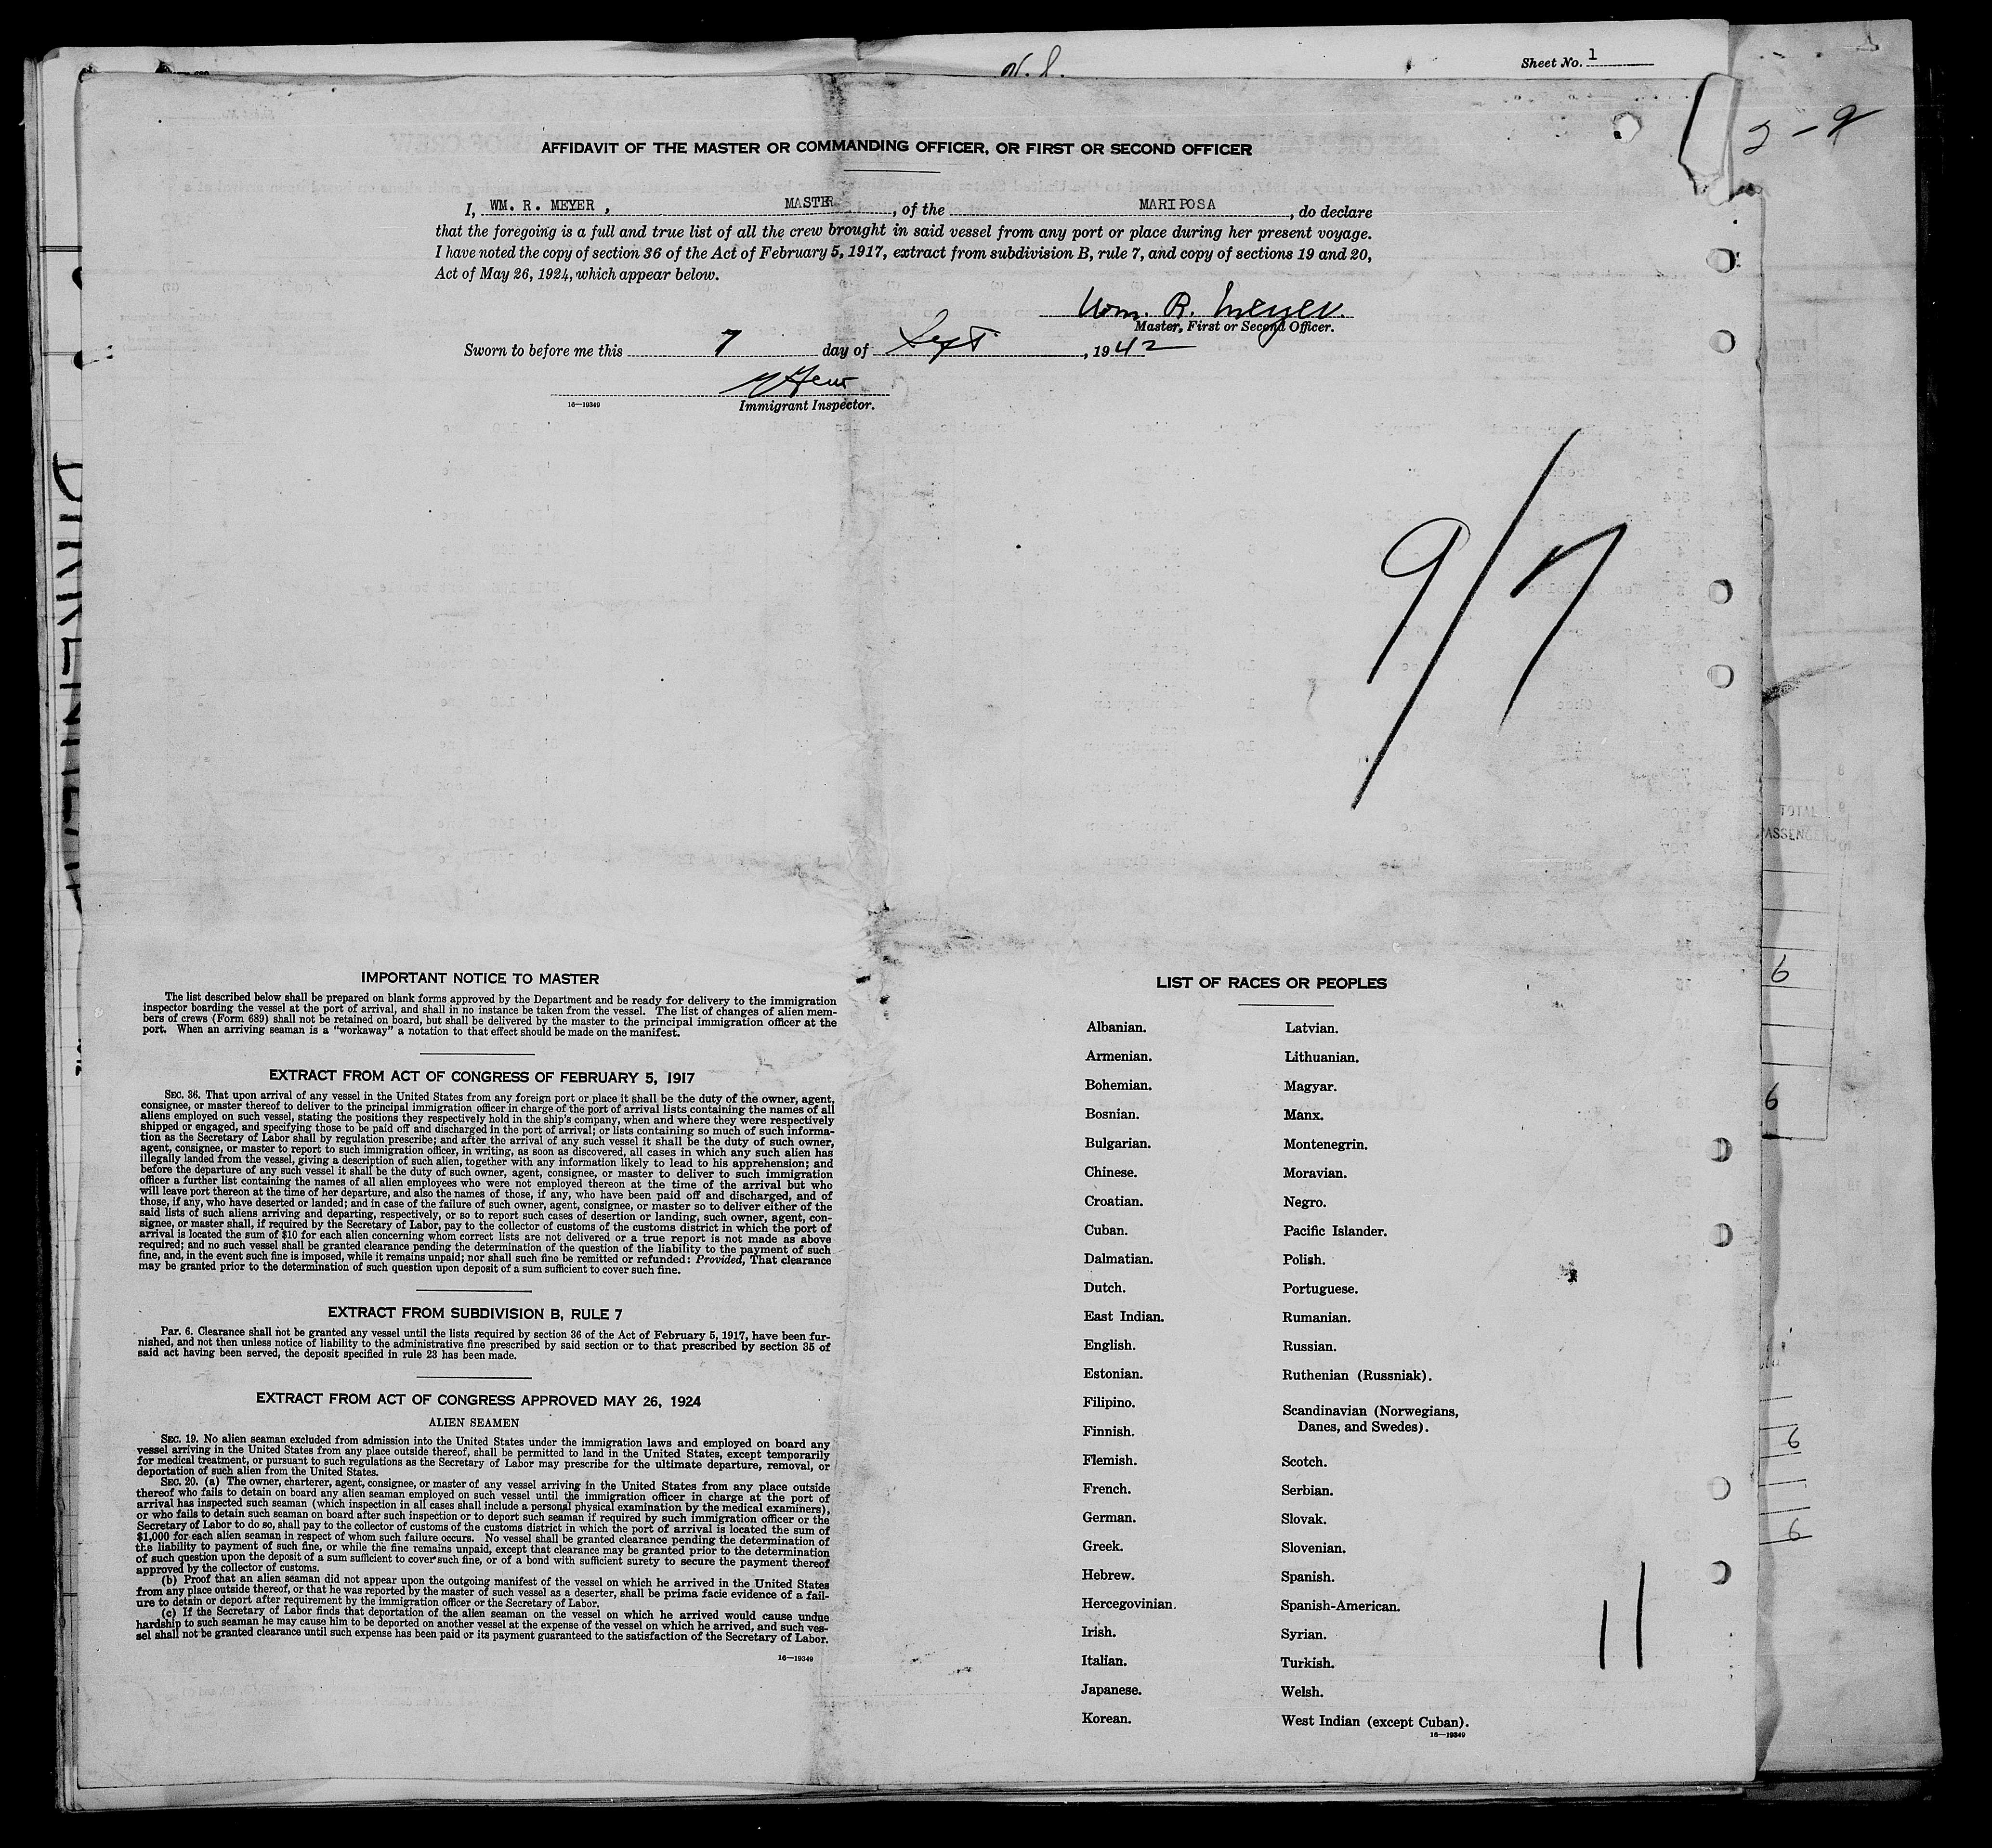 Sheet No. 1
AFFIDAVIT OF THE MASTER OR COMMANDING OFFICER, OR FIRST OR SECOND OFFICER
I, WM. R. MEYER , MASTER , of the MARIPOSA , do declare
that the foregoing is a full and true list of all the crew brought in said vessel from any port or place during her present voyage.
I have noted the copy of section 36 of the Act of February 5, 1917, extract from subdivision B, rule 7, and copy of sections 19 and 20,
Act of May 26, 1924, which appear below.
Wm. R. Meyer
Master, First or Second Officer.
Sworn to before me this 7 day of Sept , 1942
Immigrant Inspector.
16—19349
9/7
IMPORTANT NOTICE TO MASTER
The list described below shall be prepared on blank forms approved by the Department and be ready for delivery to the immigration
inspector boarding the vessel at the port of arrival, and shall in no instance be taken from the vessel. The list of changes of alien mem-
bers of crews (Form 689) shall not be retained on board, but shall be delivered by the master to the principal immigration officer at the
port. When an arriving seaman is a "workaway" a notation to that effect should be made on the manifest.
EXTRACT FROM ACT OF CONGRESS OF FEBRUARY 5, 1917
SEC. 36. That upon arrival of any vessel in the United States from any foreign port or place it shall be the duty of the owner, agent,
consignee, or master thereof to deliver to the principal immigration officer in charge of the port of arrival lists containing the names of all
aliens employed on such vessel, stating the positions they respectively hold in the ship's company, when and where they were respectively
shipped or engaged, and specifying those to be paid off and discharged in the port of arrival; or lists containing so much of such informa-
tion as the Secretary of Labor shall by regulation prescribe; and after the arrival of any such vessel it shall be the duty of such owner,
agent, consignee, or master to report to such immigration officer, in writing, as soon as discovered, all cases in which any such alien has
illegally landed from the vessel, giving a description of such alien, together with any information likely to lead to his apprehension; and
before the departure of any such vessel it shall be the duty of such owner, agent, consignee, or master to deliver to such immigration
officer a further list containing the names of all alien employees who were not employed thereon at the time of the arrival but who
will leave port thereon at the time of her departure, and also the names of those, if any, who have been paid off and discharged, and of
those, if any, who have deserted or landed; and in case of the failure of such owner, agent, consignee, or master so to deliver either of the
said lists of such aliens arriving and departing, respectively, or so to report such cases of desertion or landing, such owner, agent, con-
signee, or master shall, if required by the Secretary of Labor, pay to the collector of customs of the customs district in which the port of
arrival is located the sum of $10 for each alien concerning whom correct lists are not delivered or a true report is not made as above
required; and no such vessel shall be granted clearance pending the determination of the question of the liability to the payment of such
fine, and, in the event such fine is imposed, while it remains unpaid; nor shall such fine be remitted or refunded: Provided, That clearance
may be granted prior to the determination of such question upon deposit of a sum sufficient to cover such fine.
EXTRACT FROM SUBDIVISION B, RULE 7
Par. 6. Clearance shall not be granted any vessel until the lists required by section 36 of the Act of February 5, 1917, have been fur-
nished, and not then unless notice of liability to the administrative fine prescribed by said section or to that prescribed by section 35 of
said act having been served, the deposit specified in rule 23 has been made.
EXTRACT FROM ACT OF CONGRESS APPROVED MAY 26, 1924
ALIEN SEAMEN
SEC. 19. No alien seaman excluded from admission into the United States under the immigration laws and employed on board any
vessel arriving in the United States from any place outside thereof, shall be permitted to land in the United States, except temporarily
for medical treatment, or pursuant to such regulations as the Secretary of Labor may prescribe for the ultimate departure, removal, or
deportation of such alien from the United States.
SEC. 20. (a) The owner, charterer, agent, consignee, or master of any vessel arriving in the United States from any place outside
thereof who fails to detain on board any alien seaman employed on such vessel until the immigration officer in charge at the port of
arrival has inspected such seaman (which inspection in all cases shall include a personal physical examination by the medical examiners),
or who fails to detain such seaman on board after such inspection or to deport such seaman if required by such immigration officer or the
Secretary of Labor to do so, shall pay to the collector of customs of the customs district in which the port of arrival is located the sum of
$1,000 for each alien seaman in respect of whom such failure occurs. No vessel shall be granted clearance pending the determination of
the liability to payment of such fine, or while the fine remains unpaid, except that clearance may be granted prior to the determination
of such question upon the deposit of a sum sufficient to cover such fine, or of a bond with sufficient surety to secure the payment thereof
approved by the collector of customs.
(b) Proof that an alien seaman did not appear upon the outgoing manifest of the vessel on which he arrived in the United States
from any place outside thereof, or that he was reported by the master of such vessel as a deserter, shall be prima facie evidence of a fail-
ure to detain or deport after requirement by the immigration officer or the Secretary of Labor.
(c) If the Secretary of Labor finds that deportation of the alien seaman on the vessel on which he arrived would cause undue
hardship to such seaman he may cause him to be deported on another vessel at the expense of the vessel on which he arrived, and such ves-
sel shall not be granted clearance until such expense has been paid or its payment guaranteed to the satisfaction of the Secretary of Labor.
16—19349
LIST OF RACES OR PEOPLES
Albanian.
Armenian.
Bohemian.
Bosnian.
Bulgarian.
Chinese.
Croatian.
Cuban.
Dalmatian.
Dutch.
East Indian.
English.
Estonian.
Filipino.
Finnish.
Flemish.
French.
German.
Greek.
Hebrew.
Hercegovinian.
Irish.
Italian.
Japanese.
Korean.
Latvian.
Lithuanian.
Magyar.
Manx.
Montenegrin.
Moravian.
Negro.
Pacific Islander.
Polish.
Portuguese.
Rumanian.
Russian.
Ruthenian (Russniak).
Scandinavian (Norwegians,
Danes, and Swedes).
Scotch.
Serbian.
Slovak.
Slovenian.
Spanish.
Spanish-American.
Syrian.
Turkish.
Welsh.
West Indian (except Cuban).
16—19349
11
TOTAL
6
6
6
6